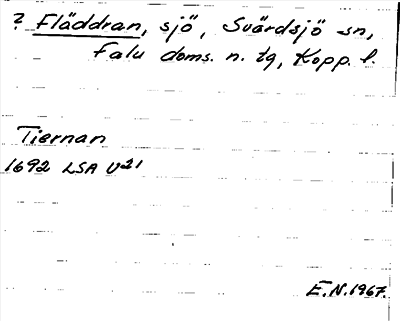 ? Fläddran, sjö, Svärdsjö sn,
Falu doms. n. tg, Kopp. l.
Tiernan
1692 LSA U21
E.N.1967.